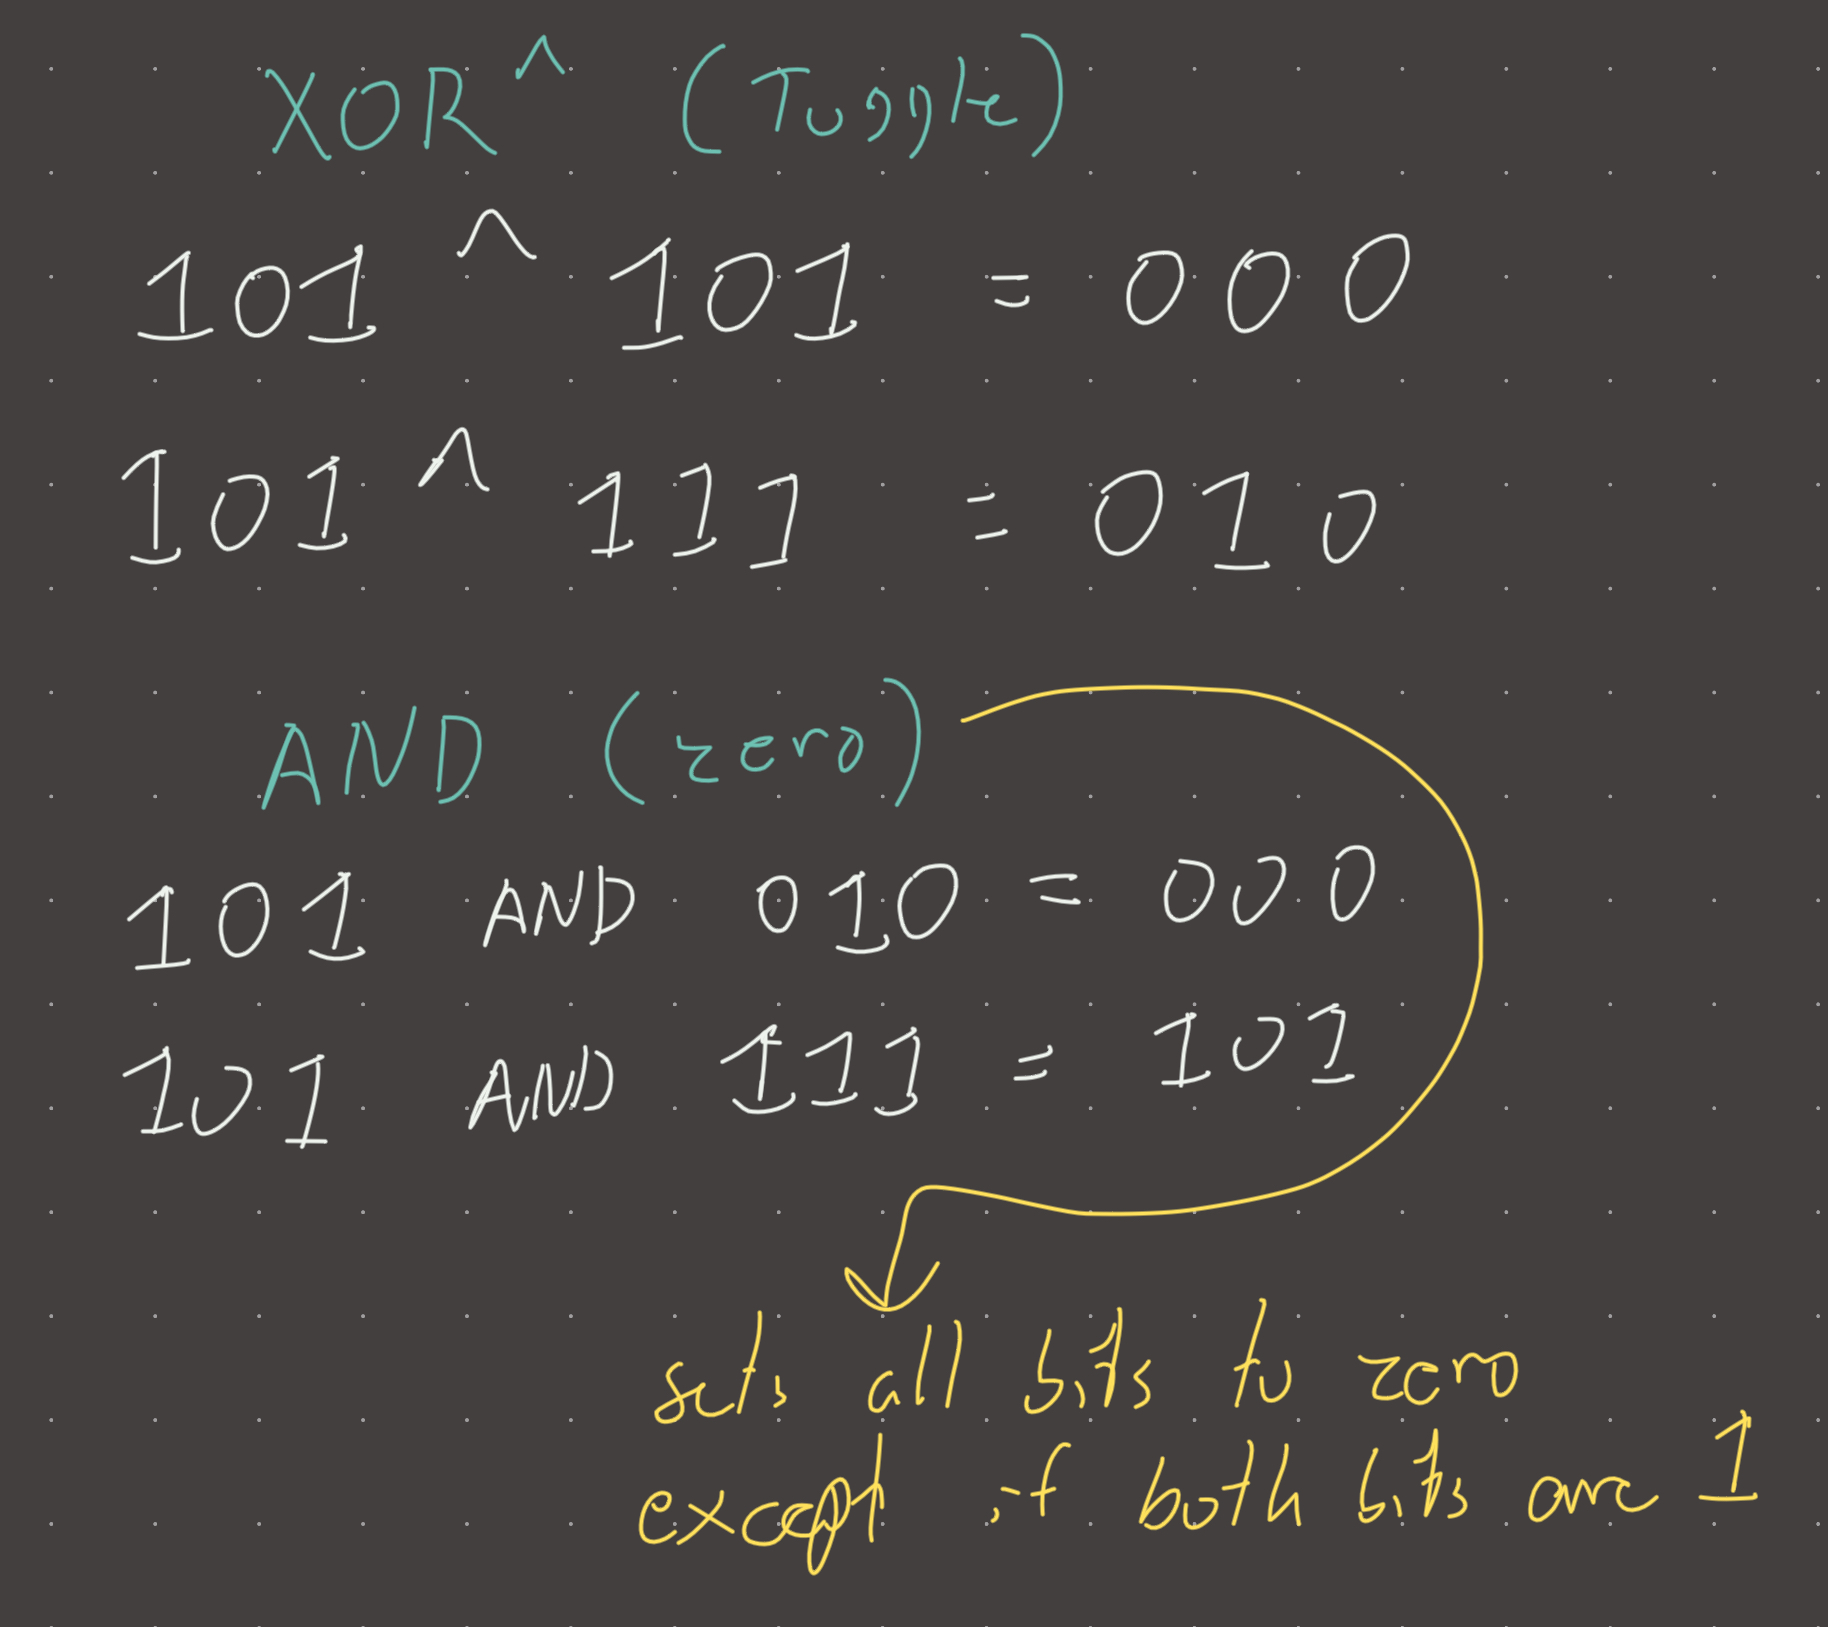 XOR ^ (Toggle)
101 ^ 101 = 000
101 ^ 111 = 010
AND (zero)
101 AND 010 = 000
101 AND 111 = 101
sets all bits to zero
except if both bits are 1